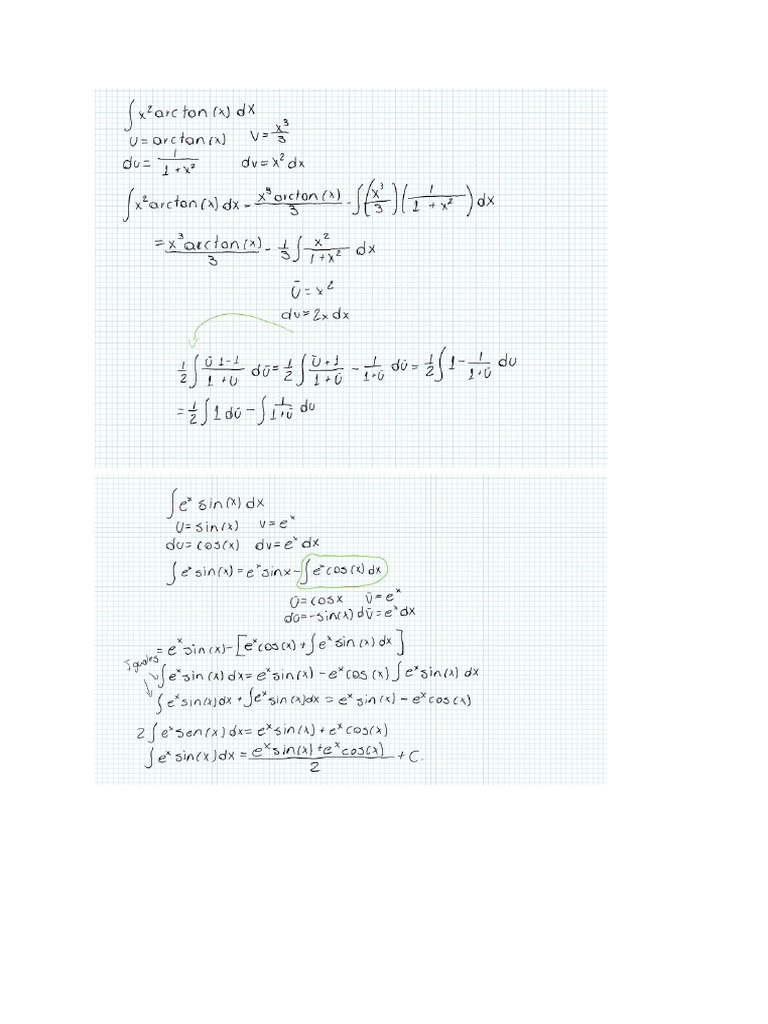 ∫x² arctan(x) dx
U = arctan(x) V = x³/3
du = 1/(1+x²) dv = x² dx
∫x² arctan(x) dx - x³ arctan(x)/3 - ∫(x³/3)(1/(1+x²)) dx
= x³ arctan(x)/3 - 1/3 ∫ x²/(1+x²) dx
Ū = x²
du = 2x dx
1/2 ∫ (Ū 1-1)/(1+U) dū = 1/2 ∫ (Ū+1)/(1+Ū) - 1/(1+Ū) dū = 1/2 ∫ 1 - 1/(1+Ū) du
= 1/2 ∫ 1 dū - ∫ 1/(1+ū) du
∫eˣ sin(x) dx
U = sin(x) v = eˣ
du = cos(x) dv = eˣ dx
∫eˣ sin(x) = eˣ sinx - ∫eˣ cos(x) dx
Ū = cosx Ū = eˣ
dū = -sin(x) dū = eˣ dx
= eˣ sin(x) - [eˣ cos(x) + ∫eˣ sin(x) dx]
Iguales
∫eˣ sin(x) dx = eˣ sin(x) - eˣ cos(x) ∫eˣ sin(x) dx
∫eˣ sin(x) dx + ∫eˣ sin(x) dx = eˣ sin(x) - eˣ cos(x)
2∫eˣ sen(x) dx = eˣ sin(x) + eˣ cos(x)
∫eˣ sin(x) dx = (eˣ sin(x) + eˣ cos(x))/2 + C.